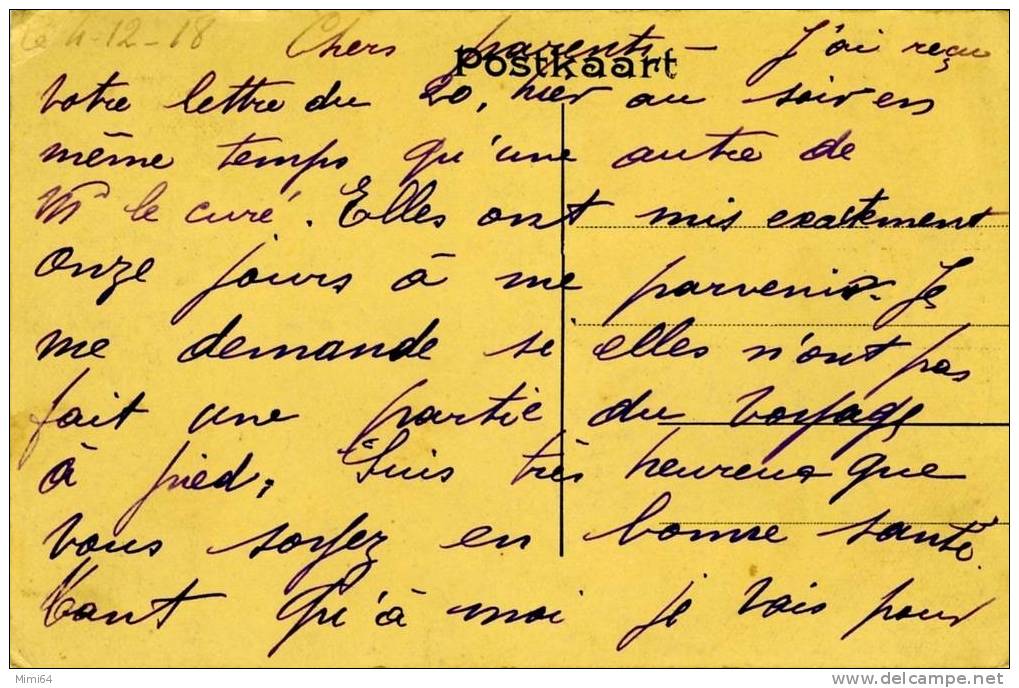 Le 4-12-18 Chers parents - J'ai reçu
Postkaart
votre lettre du 20, hier au soir en
même temps qu'une autre de
Mr le curé. Elles ont mis exactement
onze jours à me parvenir. Je
me demande si elles n'ont pas
fait une partie du voyage
à pied. Suis très heureux que
vous soyez en bonne santé.
Tant qu'à moi je vais pour
Mimi64
delcampe.net